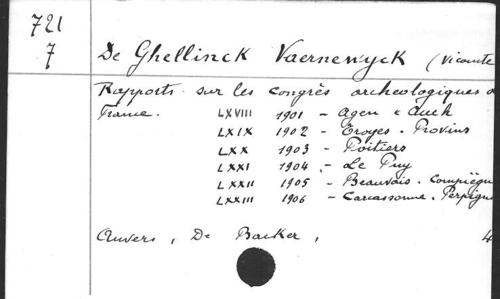 721
7
De Ghellinck Vaernewyck (Vicomte
Rapports sur les congrès archeologiques d
France.
LXVIII 1901 - Agen & Auch
LXIX 1902 - Troyes - Provins
LXX 1903 - Poitiers
LXXI 1904 - Le Puy
LXXII 1905 - Beauvais - Compiègn
LXXIII 1906 - Carcassonne - Perpigna
Anvers, De Backer, 4